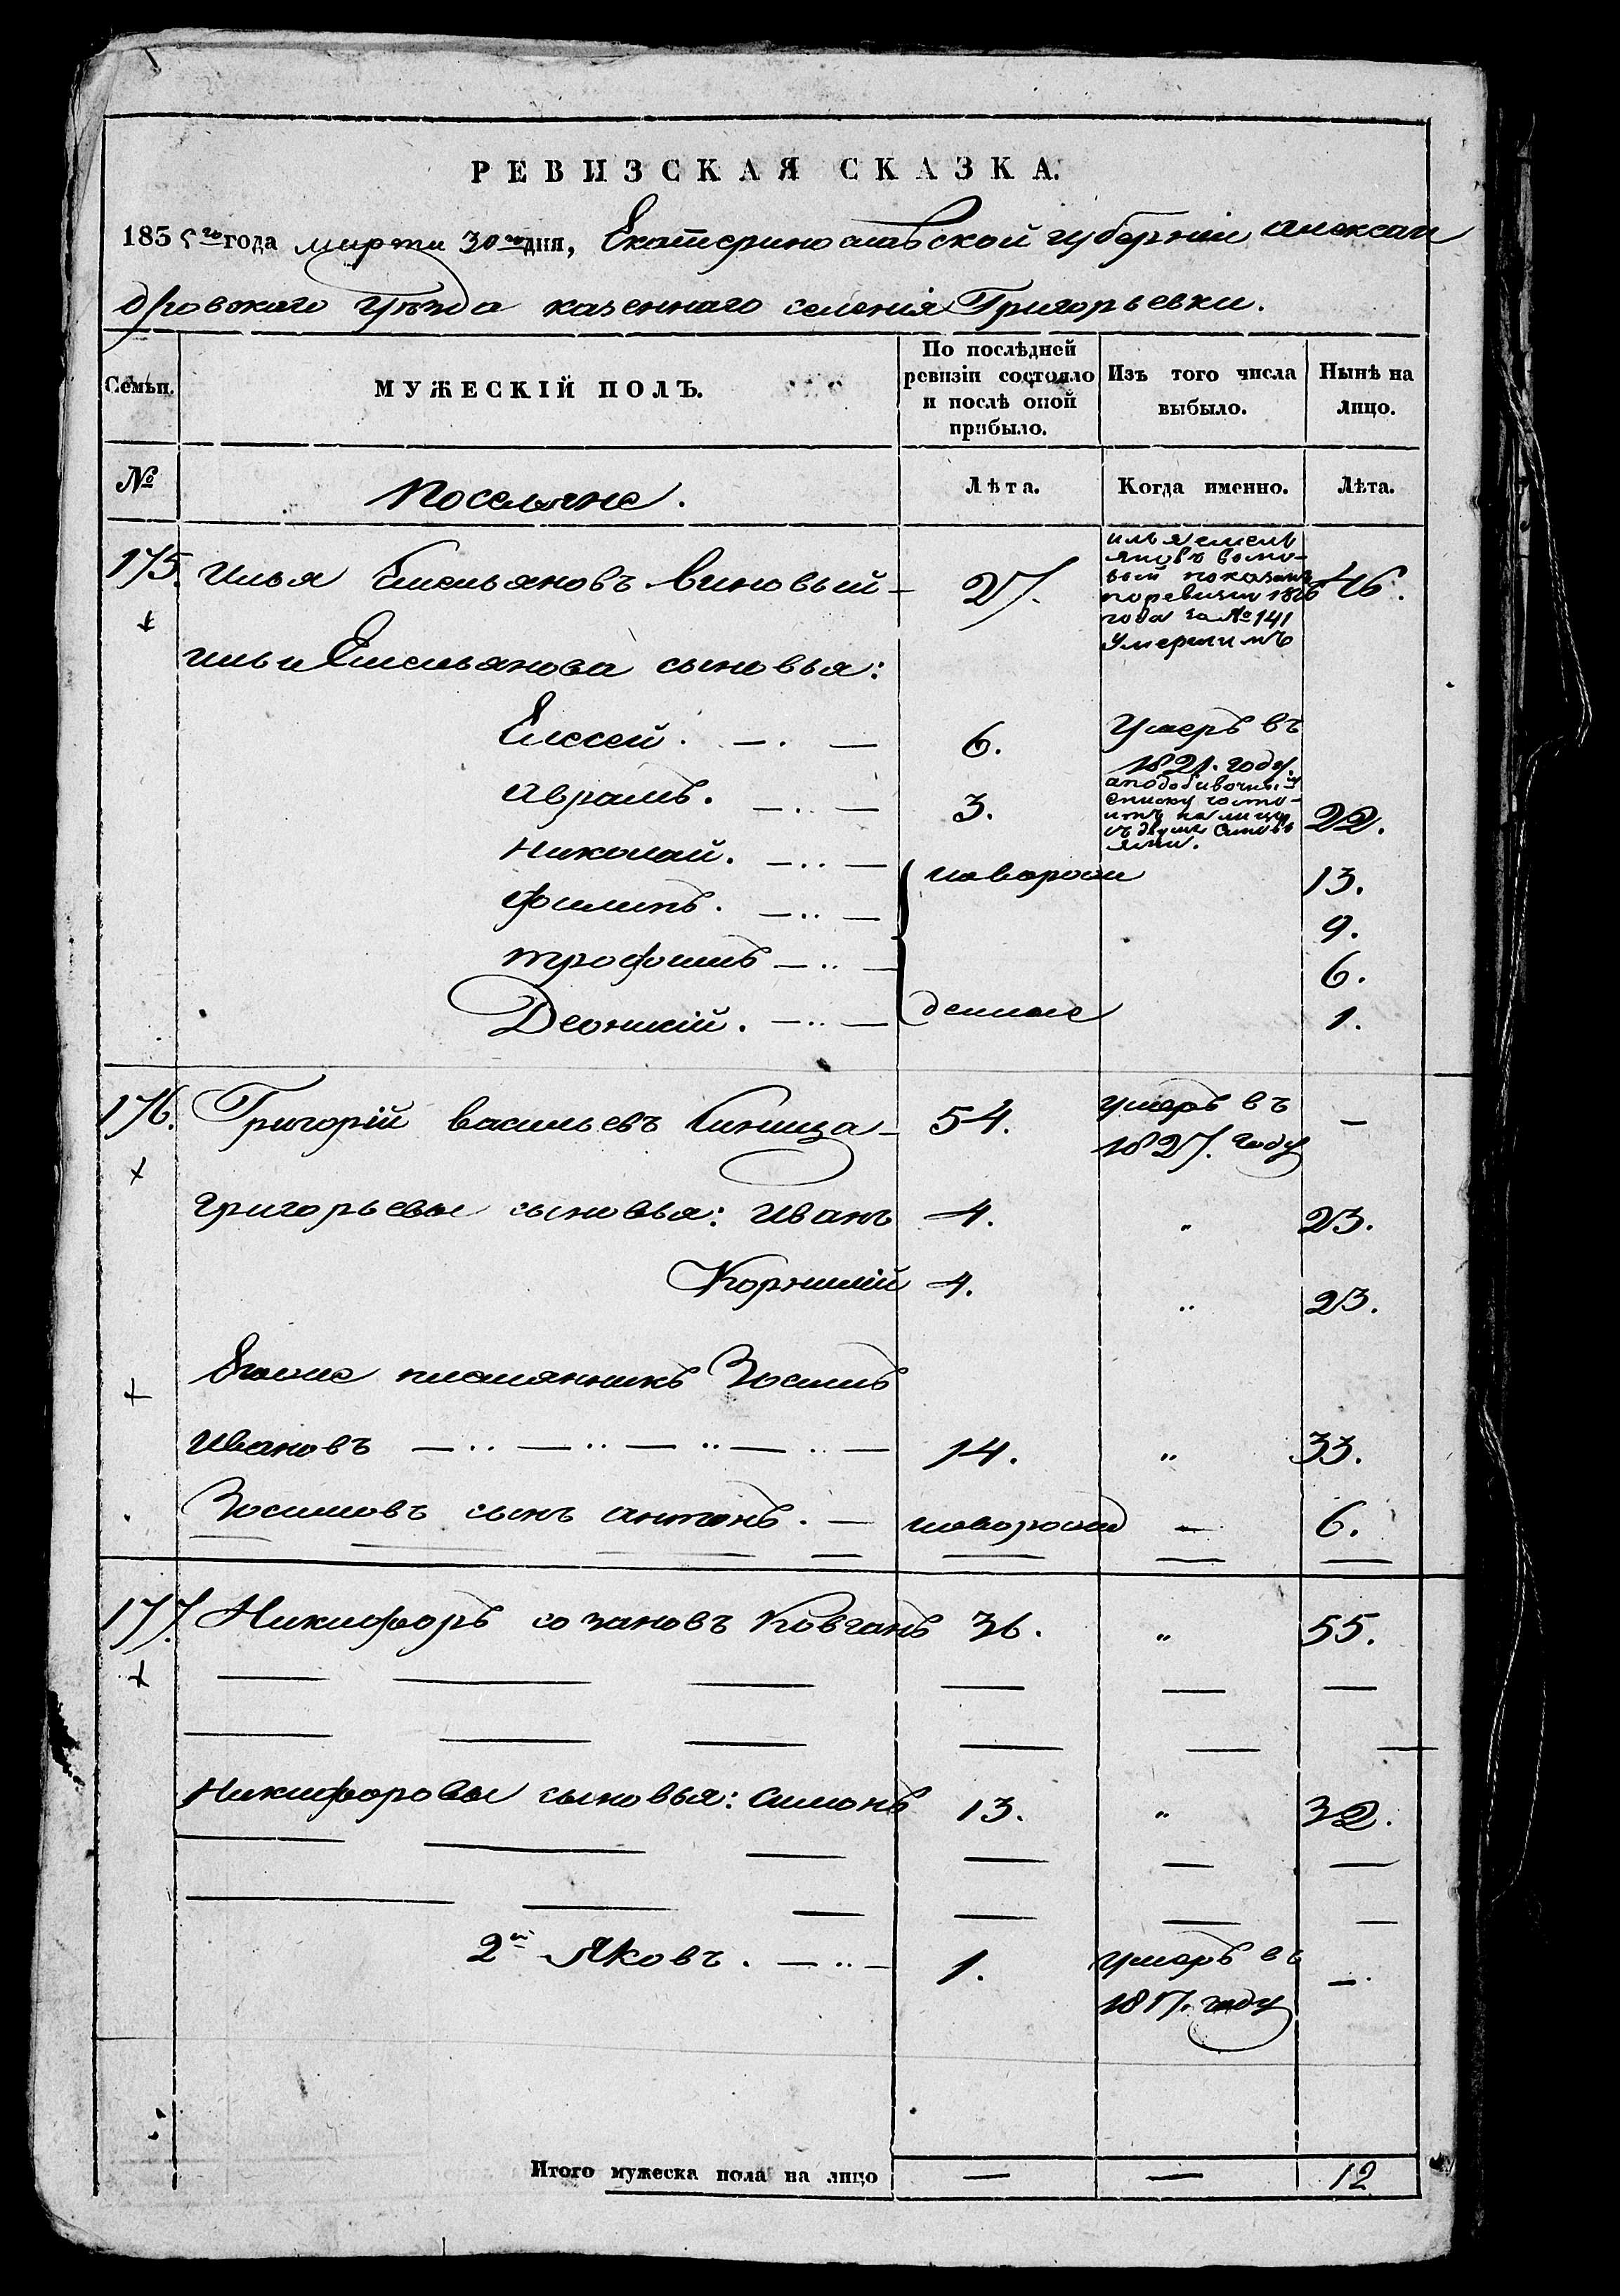 РЕВИЗСКАЯ СКАЗКА.
1835го года марта 30го дня, Екатеринославской губернии Алексан
дровскаго уѣзда казеннаго селенія Григорьевки.
Семьи.
МУЖЕСКІЙ ПОЛЪ.
По послѣдней ревизіи состояло и послѣ оной прибыло.
Изъ того числа выбыло.
Нынѣ на лицо.
№
Поселяне.
Лѣта.
Когда именно.
Лѣта.
175. Илья Емельяновъ Виновый — 27. 46.
Илья Емель
яновъ
вый показанъ
по ревизіи 1816
года за № 141
умершимъ
Ильи Емельянова сыновья:
Елесей. — . — 6. Умеръ въ
1821. году.
Аврамъ. — . — 3. 22.
списку состо-
итъ на лицо
съ двумя сыновь
ями.
Николай. — .. — новорож 13.
Филипъ. — .. — 9.
Трофимъ — .. — 6.
Леонтій. — .. — денные 1.
176. Григорій Васильевъ Синица — 54. умеръ въ —
1827. году
Григорьевы сыновья: Иванъ 4. " 23.
Корнилій 4. " 23.
Егоже племянникъ Зосимъ
Ивановъ — .. — .. — .. — .. — 14. " 33.
Зосимовъ сынъ Антонъ. — новорожд — 6.
177. Никифоръ Созановъ Ковганъ 36. " 55.
Никифоровы сыновья: Симонъ 13. " 32.
2й Яковъ. — .. — 1. умеръ въ —.
1817. году
Итого мужеска пола на лицо — — 12